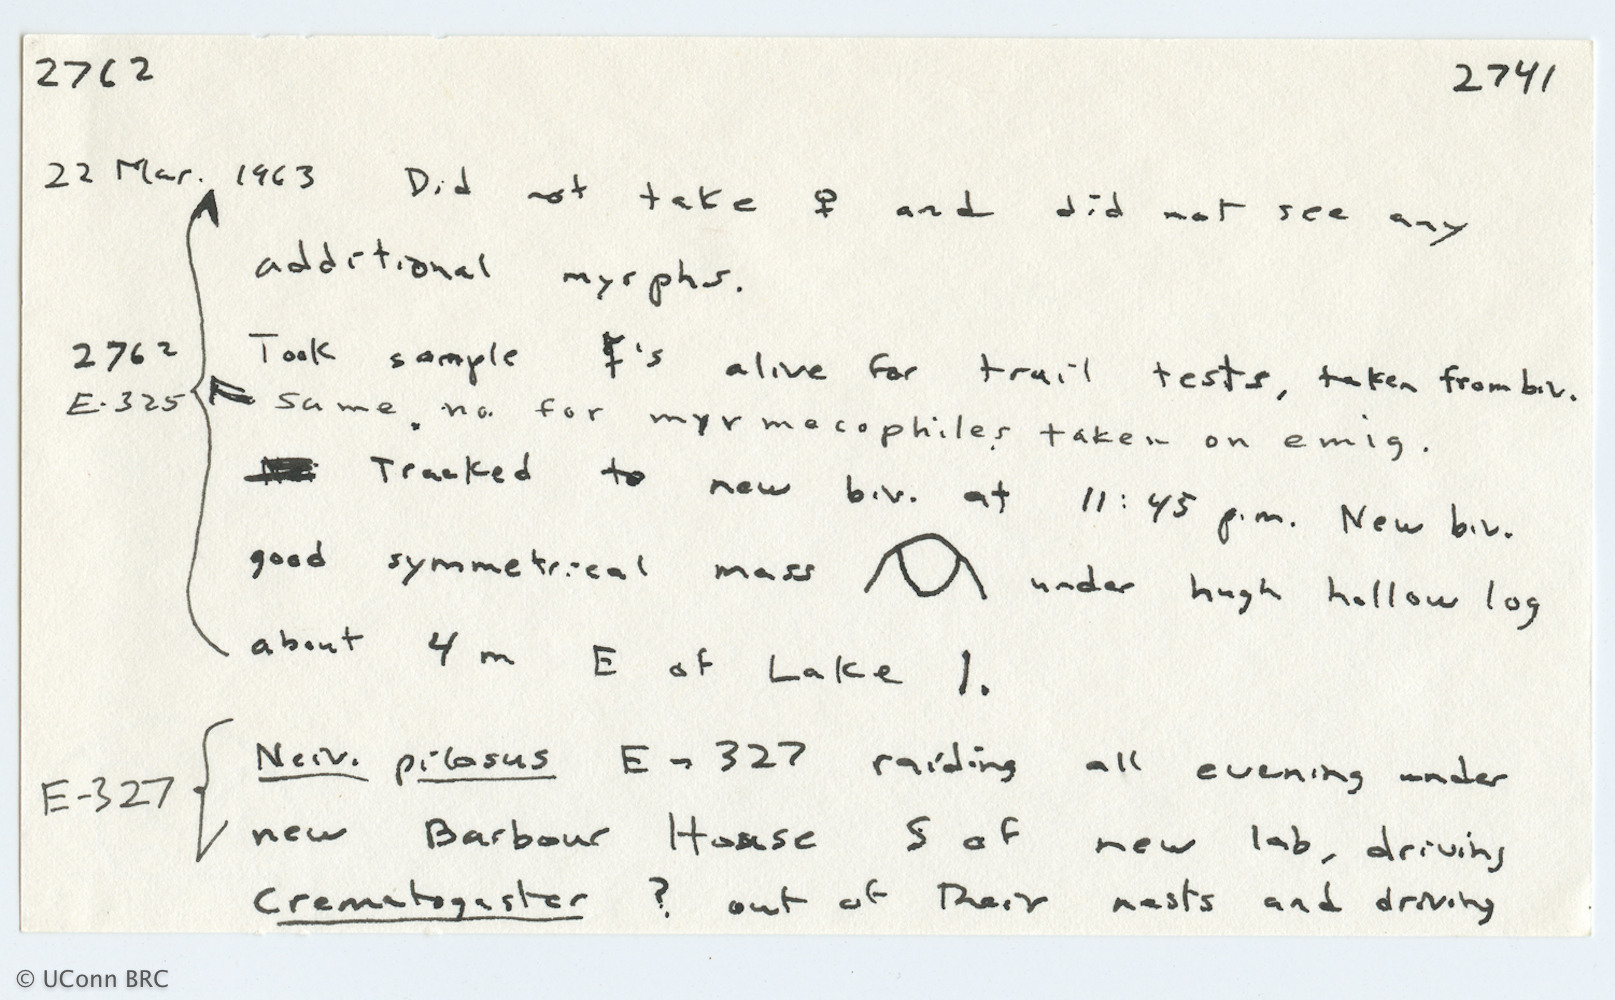 2762 2741
22 Mar. 1963 Did not take ♀ and did not see any
additional myrphs.
2762 Took sample ☿'s alive for trail tests, taken from biv.
E-325 Same no. for myrmecophiles taken on emig.
Tracked to new biv. at 11:45 p.m. New biv.
good symmetrical mass under hugh hollow log
about 4 m E of Lake 1.
Neiv. pilosus E-327 raiding all evening under
E-327 new Barbour House S of new lab, driving
Crematogaster ? out of their nests and driving
© UConn BRC